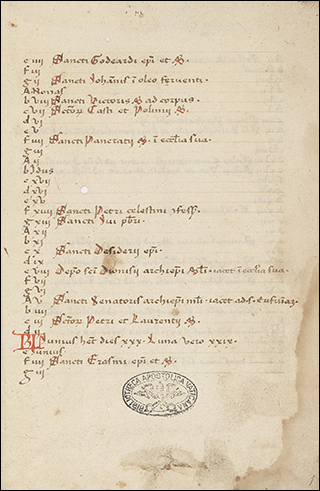 e iiii Sancti Godeardi epi et S.
f iii
g ii Sancti Johanis i oleo ferventi.
A Nonas
b viii Sancti Victoris S ad corpus.
c vii Scoru Casti et Polinii S.
d vi
e v
f iiii Sancti Pancratii S. i ecclia sua.
g iii
A ii
b Idus
c xvii
d xvi
e xv
f xiiii Sancti Petri celestini 9fess.
g xiii Sancti Iui pbri.
A xii
b xi
c x Sancti Desiderii epi.
d ix
e viii Depo sci Dionisii archiepi Mli. iacet i ecclia sua.
f vii
g vi
A v Sancti Senatoris archiepi mli. iacet ad S. Eufimiaz.
b iiii
c iii Scoru Petri et Laurentii S.
d ii
Iunius het dies xxx. Luna vero xxix.
e Iunius
f iiii Sancti Erasmi epi et S.
g iii
BIBLIOTHECA APOSTOLICA VATICANA